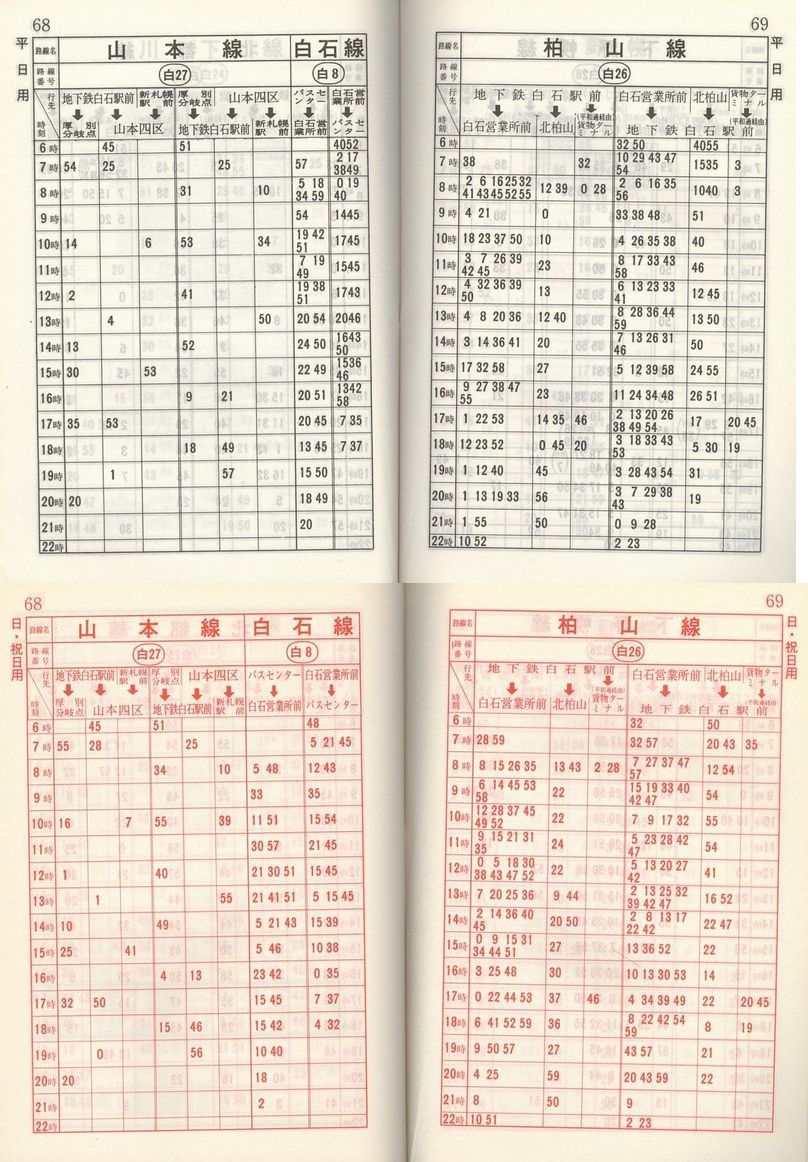 68
平日用
路線名 山本線 白石線
路線番号 白27 白8
行先 地下鉄白石駅前 新札幌駅前 厚別分岐点 山本四区 バスセンター 白石営業所前
時刻 厚別分岐点 山本四区 地下鉄白石駅前 新札幌駅前 白石営業所前 バスセンター
6時 45 51 40 52
7時 54 25 25 57 2 17 38 49
8時 31 10 5 18 34 59 0 19 40
9時 54 14 45
10時 14 6 53 34 19 42 51 17 45
11時 7 19 49 15 45
12時 2 41 19 38 51 17 43
13時 4 50 20 54 20 46
14時 13 52 24 50 16 43 50
15時 30 53 22 49 15 36 46
16時 9 21 20 51 13 42 58
17時 35 53 20 45 7 35
18時 18 49 13 45 7 37
19時 1 57 15 50
20時 20 18 49
21時 20
22時
69
平日用
路線名 柏山線
路線番号 白26
行先 地下鉄白石駅前 白石営業所前 北柏山 貨物ターミナル
時刻 白石営業所前 北柏山 (平和通経由)貨物ターミナル 地下鉄白石駅前 (平和通経由)
6時 32 50 40 55
7時 38 32 10 29 43 47 54 15 35 3
8時 2 6 16 25 32 41 43 45 52 55 12 39 0 28 2 6 16 35 56 10 40 3
9時 4 21 0 33 38 48 51
10時 18 23 37 50 10 4 26 35 38 40
11時 3 7 26 39 42 45 23 8 17 33 43 58 46
12時 4 32 36 39 50 13 6 13 23 33 41 12 45
13時 4 8 20 36 12 40 8 28 36 44 59 13 50
14時 3 14 36 41 20 7 13 26 31 46 50
15時 17 32 58 27 5 12 39 58 24 55
16時 9 27 38 47 55 23 11 24 34 48 26 51
17時 1 22 53 14 35 46 2 13 20 26 38 49 54 17 20 45
18時 12 23 52 0 45 20 3 18 33 43 53 5 30 19
19時 1 12 40 45 3 28 43 54 31
20時 1 13 19 33 56 3 7 29 38 43 19
21時 1 55 50 0 9 28
22時 10 52 2 23
68
日・祝日用
路線名 山本線 白石線
路線番号 白27 白8
行先 地下鉄白石駅前 新札幌駅前 厚別分岐点 山本四区 バスセンター 白石営業所前
時刻 厚別分岐点 山本四区 地下鉄白石駅前 新札幌駅前 白石営業所前 バスセンター
6時 45 51 48
7時 55 28 25 5 21 45
8時 34 10 5 48 12 43
9時 33 35
10時 16 7 55 39 11 51 15 54
11時 30 57 21 45
12時 1 40 21 30 51 15 45
13時 1 55 21 41 51 5 15 45
14時 10 49 5 21 43 15 39
15時 25 41 5 46 10 38
16時 4 13 23 42 0 35
17時 32 50 15 45 7 37
18時 15 46 15 42 4 32
19時 0 56 10 40
20時 20 18
21時 2
22時
69
日・祝日用
路線名 柏山線
路線番号 白26
行先 地下鉄白石駅前 白石営業所前 北柏山 貨物ターミナル
時刻 白石営業所前 北柏山 (平和通経由)貨物ターミナル 地下鉄白石駅前 (平和通経由)
6時 32 50
7時 28 59 32 57 20 43 35
8時 8 15 26 35 13 43 2 28 7 27 37 47 57 12 54
9時 6 14 45 53 58 22 15 19 33 40 42 47 54
10時 12 28 37 45 49 52 22 7 9 17 32 55
11時 9 15 21 31 35 24 5 23 28 42 47 54
12時 0 5 18 30 38 43 47 52 22 5 13 20 27 42 41
13時 7 20 25 36 9 44 2 13 25 32 39 42 47 16 52
14時 2 14 36 40 45 20 50 2 8 13 17 22 42 22 47
15時 0 9 15 31 34 44 51 27 13 36 52 22
16時 3 25 48 30 10 13 30 53 14
17時 0 22 44 53 37 46 4 34 39 49 22 20 45
18時 6 41 52 59 36 8 22 42 54 59 8 19
19時 9 50 57 27 43 57 21
20時 4 25 59 20 43 59 22
21時 8 50 9
22時 10 51 2 23